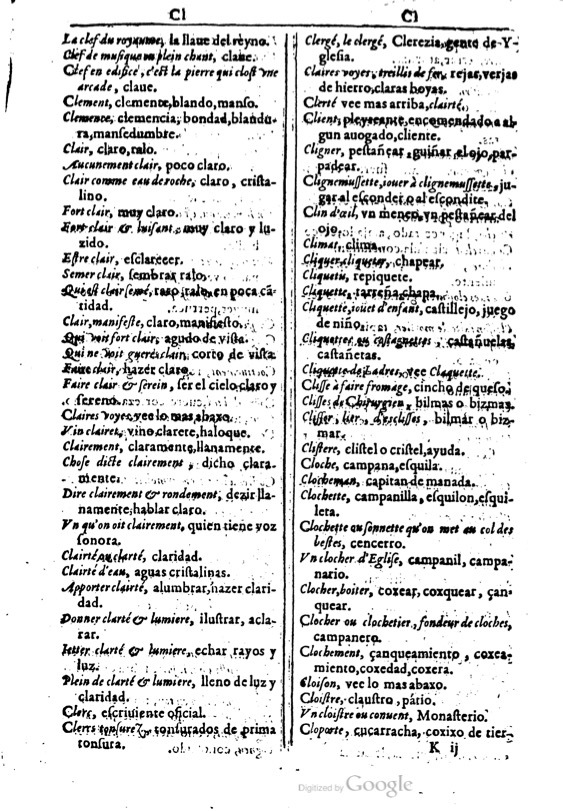 Cl
La clef du royaume, la llaue del reyno.
Clef de musique ou plein chant, claue.
Clef en edifice, c'est la pierre qui clost vne
arcade, claue.
Clement, clemente, blando, manso.
Clemence, clemencia, bondad, blandu-
ra, mansedumbre.
Clair, claro, ralo.
Aucunement clair, poco claro.
Clair comme eau de roche, claro, crista-
lino.
Fort clair, muy claro.
Fort clair & luisant, muy claro y lu-
zido.
Estre clair, esclarecer.
Semer clair, sembrar ralo.
Qui est clair semé, raro, ralo, en poca cã-
tidad.
Clair, manifeste, claro, manifiesto.
Qui voit fort clair, agudo de vista.
Qui ne voit gueres clair, corto de vista
Faire clair, hazer claro.
Faire clair & serein, ser el cielo claro y
sereno.
Claires voyes, vee lo mas abaxo.
Vin clairet, vino clarete, haloque.
Clairement, claramente, llanamente.
Chose dicte clairement, dicho clara-
mente.
Dire clairement & rondement, dezir lla-
namente, hablar claro.
Vn qu'on oit clairement, quien tiene voz
sonora.
Clairté ou clarté, claridad.
Clairté d'eau, aguas cristalinas.
Apporter clairté, alumbrar, hazer clari-
dad.
Donner clarté & lumiere, ilustrar, acla-
rar.
Ietter clarté & lumiere, echar rayos y
luz.
Plein de clarté & lumiere, lleno de luz y
claridad.
Clerc, escriuiente oficial.
Clercs tonsurez, tonsurados de prima
tonsura.
Cl
Clergé, le clergé, Clerezia, gente de Y-
glesia.
Claires voyes, treillis de fer, rejas, verjas
de hierro, claras boyas.
Clerté vee mas arriba, clairté.
Client, pleyteante, encomendado a al-
gun auogado, cliente.
Cligner, pestañear, guiñar el ojo, par-
padear.
Clignemussette, iouer à clignemussette, ju-
gar al esconder, o al escondite.
Clin d'œil, vn meneo, vn pestañear del
ojo.
Climat, clima.
Cliquer, cliqueter, chapear.
Cliquetis, repiquete.
Cliquette, tarreña, chapa.
Cliquette, iouet d'enfant, castillejo, juego
de niño.
Cliquettes ou castagnettes, castañuelas,
castañetas.
Cliquette de Ladres, vee Claquette.
Clisse à faire fromage, cincho de queso.
Clisses de Chirurgien, bilmas o bizmas.
Clisser, lier, d'esclisses, bilmar o biz-
mar.
Clistere, clistel o cristel, ayuda.
Cloche, campana, esquila.
Clocheman, capitan de manada.
Clochette, campanilla, esquilon, esqui-
leta.
Clochette ou sonnette qu'on met au col des
bestes, cencerro.
Vn clocher d'Eglise, campanil, campa-
nario.
Clocher, boiter, coxear, coxquear, çan-
quear.
Clocher ou clochetier, fondeur de cloches,
campanero.
Clochement, çanqueamiento, coxea-
miento, coxedad, coxera.
Cloison, vee lo mas abaxo.
Cloistre, claustro, patio.
Vn cloistre ou conuent, Monasterio.
Cloporte, cucarracha, coxixo de tier-
K ij
Digitized by Google